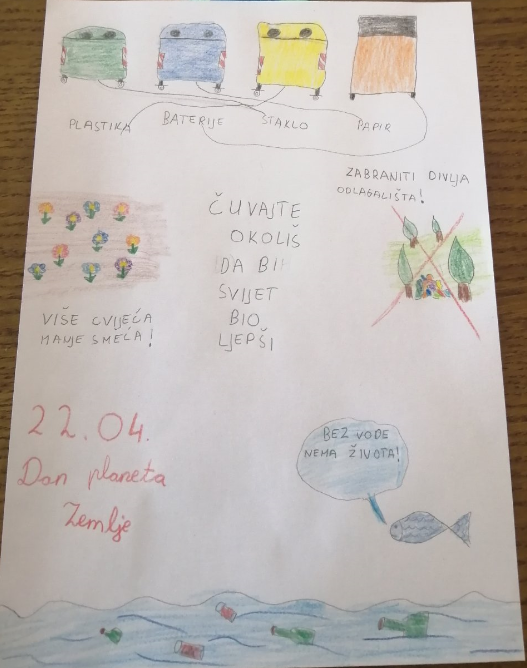 PLASTIKA BATERIJE STAKLO PAPIR
ZABRANITI DIVLJA
ODLAGALIŠTA!
ČUVAJTE
OKOLIŠ
DA BI
SVIJET
BIO
LJEPŠI
VIŠE CVIJEĆA
MANJE SMEĆA!
22.04.
Dan planeta
Zemlje
BEZ VODE
NEMA ŽIVOTA!